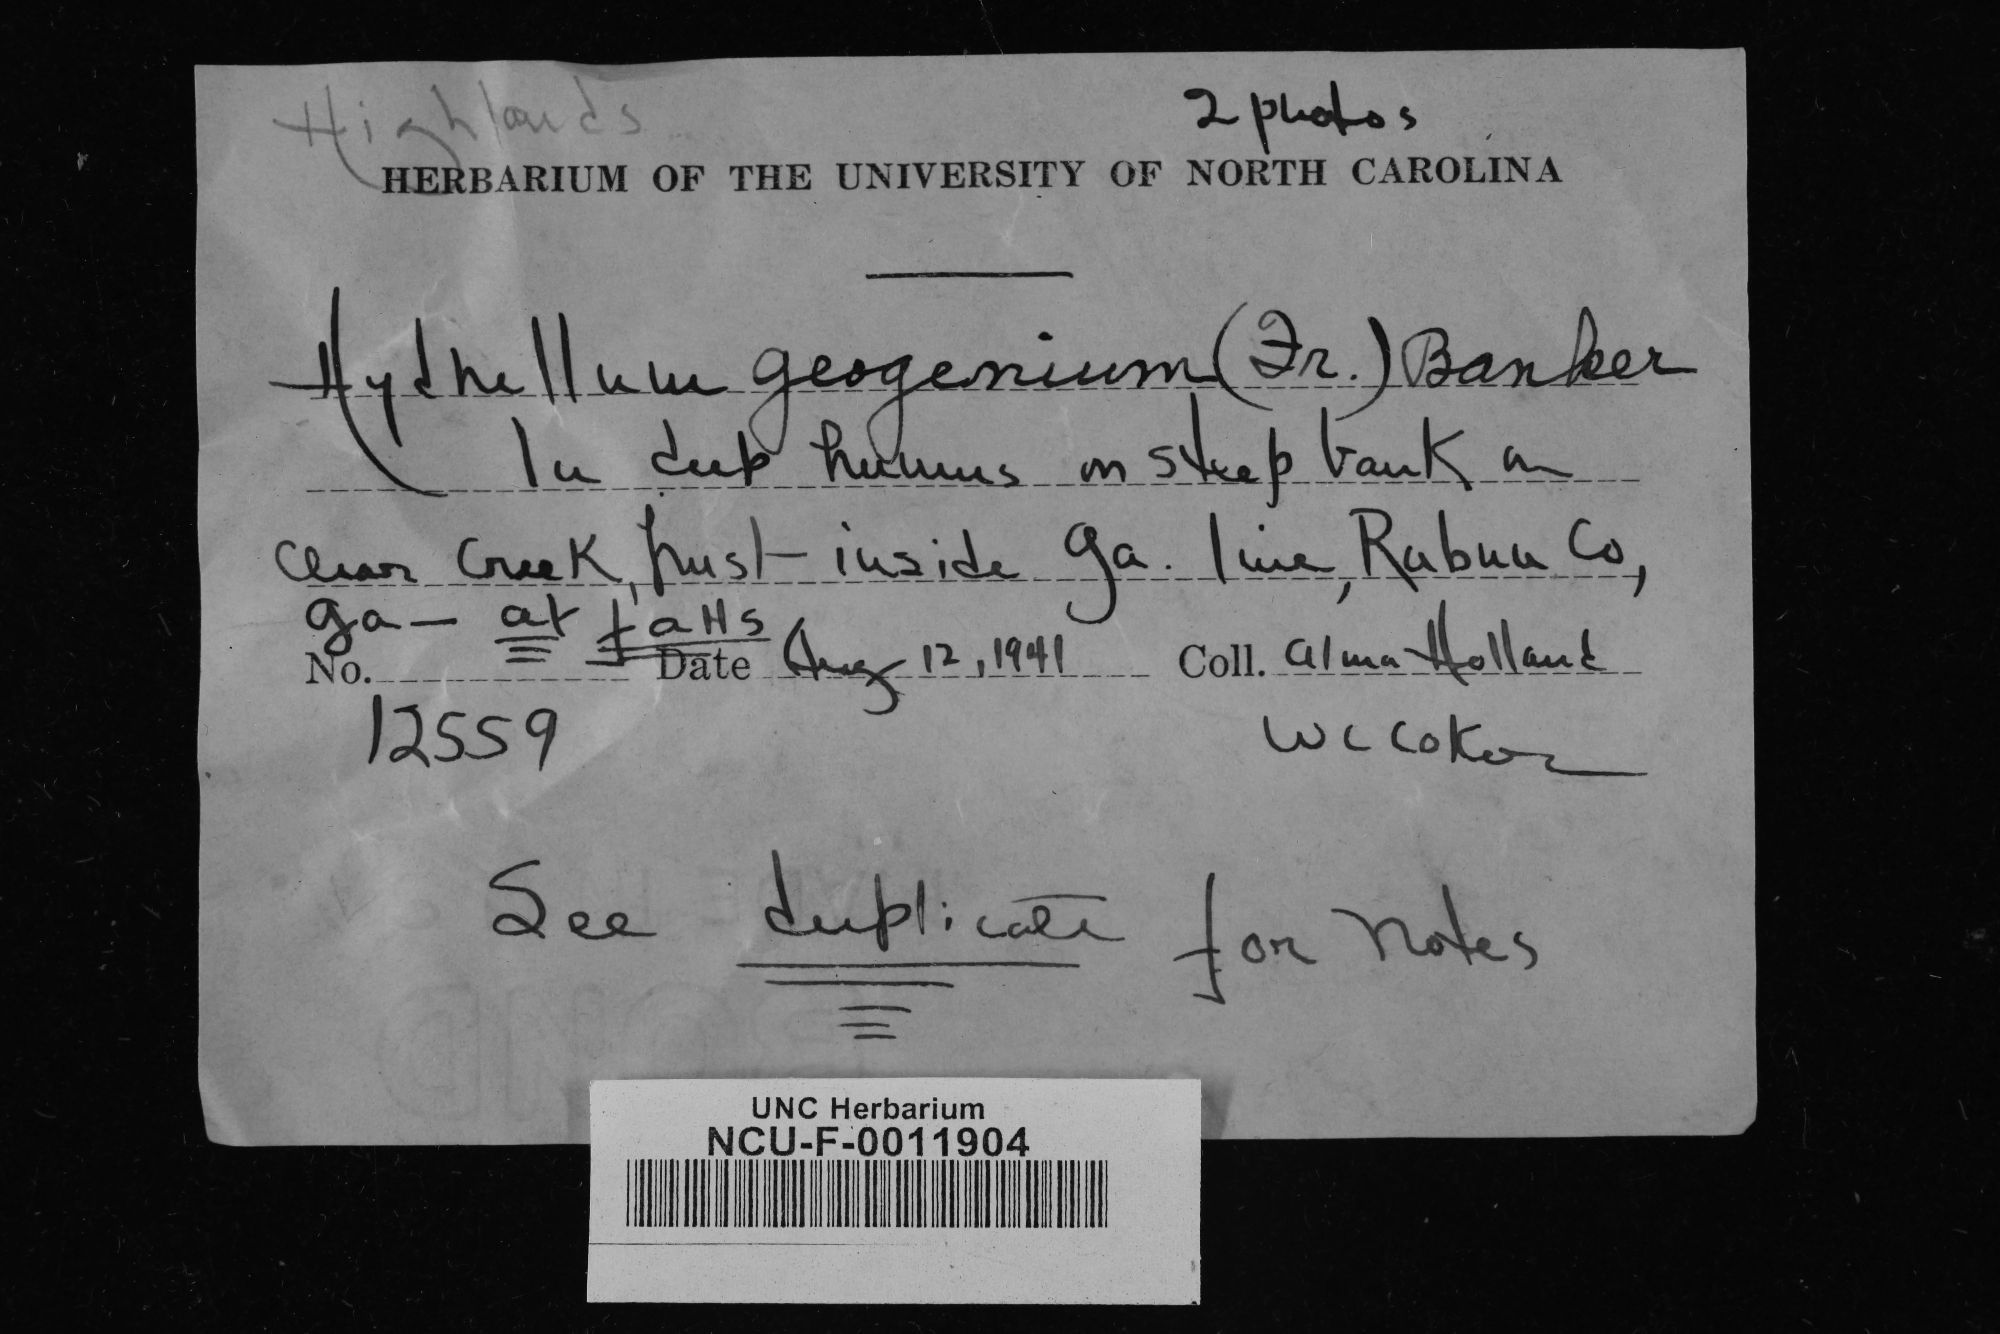 Highlands
2 photos
HERBARIUM OF THE UNIVERSITY OF NORTH CAROLINA
Hydnellum geogenium (Fr.) Banker
In deep humus on steep bank on
Clear Creek, just inside Ga. line, Rabun Co,
Ga - at falls
No. Date Aug 12, 1941 Coll. Alma Holland
12559 W C Coker
See duplicate for notes
UNC Herbarium
NCU-F-0011904